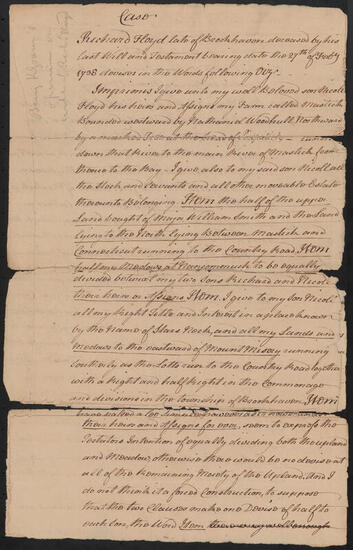 Case.
Richard Floyd late of Brookhaven deceased by his
Last Will and Testament bearing date the 27th of Feby
1738 devises in the Words following Viz.
Imprimis I give unto my well beloved son Nicoll
Floyd his heirs and Assigns my Farm called Mastick
Bounded westward by Nathaniel Woodhull Northward
by a marked Tree at the head of
down that River to the main River of Mastick from
thence to the Bay. I give also to my said son Nicoll all
the Stock, and Servants and all other moveable Estate
thereunto Belonging. Item the half of the upper
Land bought of Major William Smith and the Land
lying to the North lying Between Mastick and
Connecticut running to the Country Road, Item
half my Medows at to be equally
divided betwixt my two Sons Richard and Nicoll
their heirs or Assigns Item. I give to my Son Nicoll
all my Right Title and Interest in a place known
by the Name of Stars Neck, and all my Lands and
Medows to the eastward of Mount Misery running
Southerly as the Lotts run to the Country Road together
with a Right and half Right in the Commonage
and divisions in the Township of Brookhaven. Item
their heirs and Assigns for ever, seem to express the
Testators Intention of equally dividing both the Upland
and Meadow, otherwise there would be no devise at
all of the Remaining Moiety of the Upland, And I
do not think it a forced Construction, to suppose
that the two Clauses make one Devise of half to
each Son, the Word Item